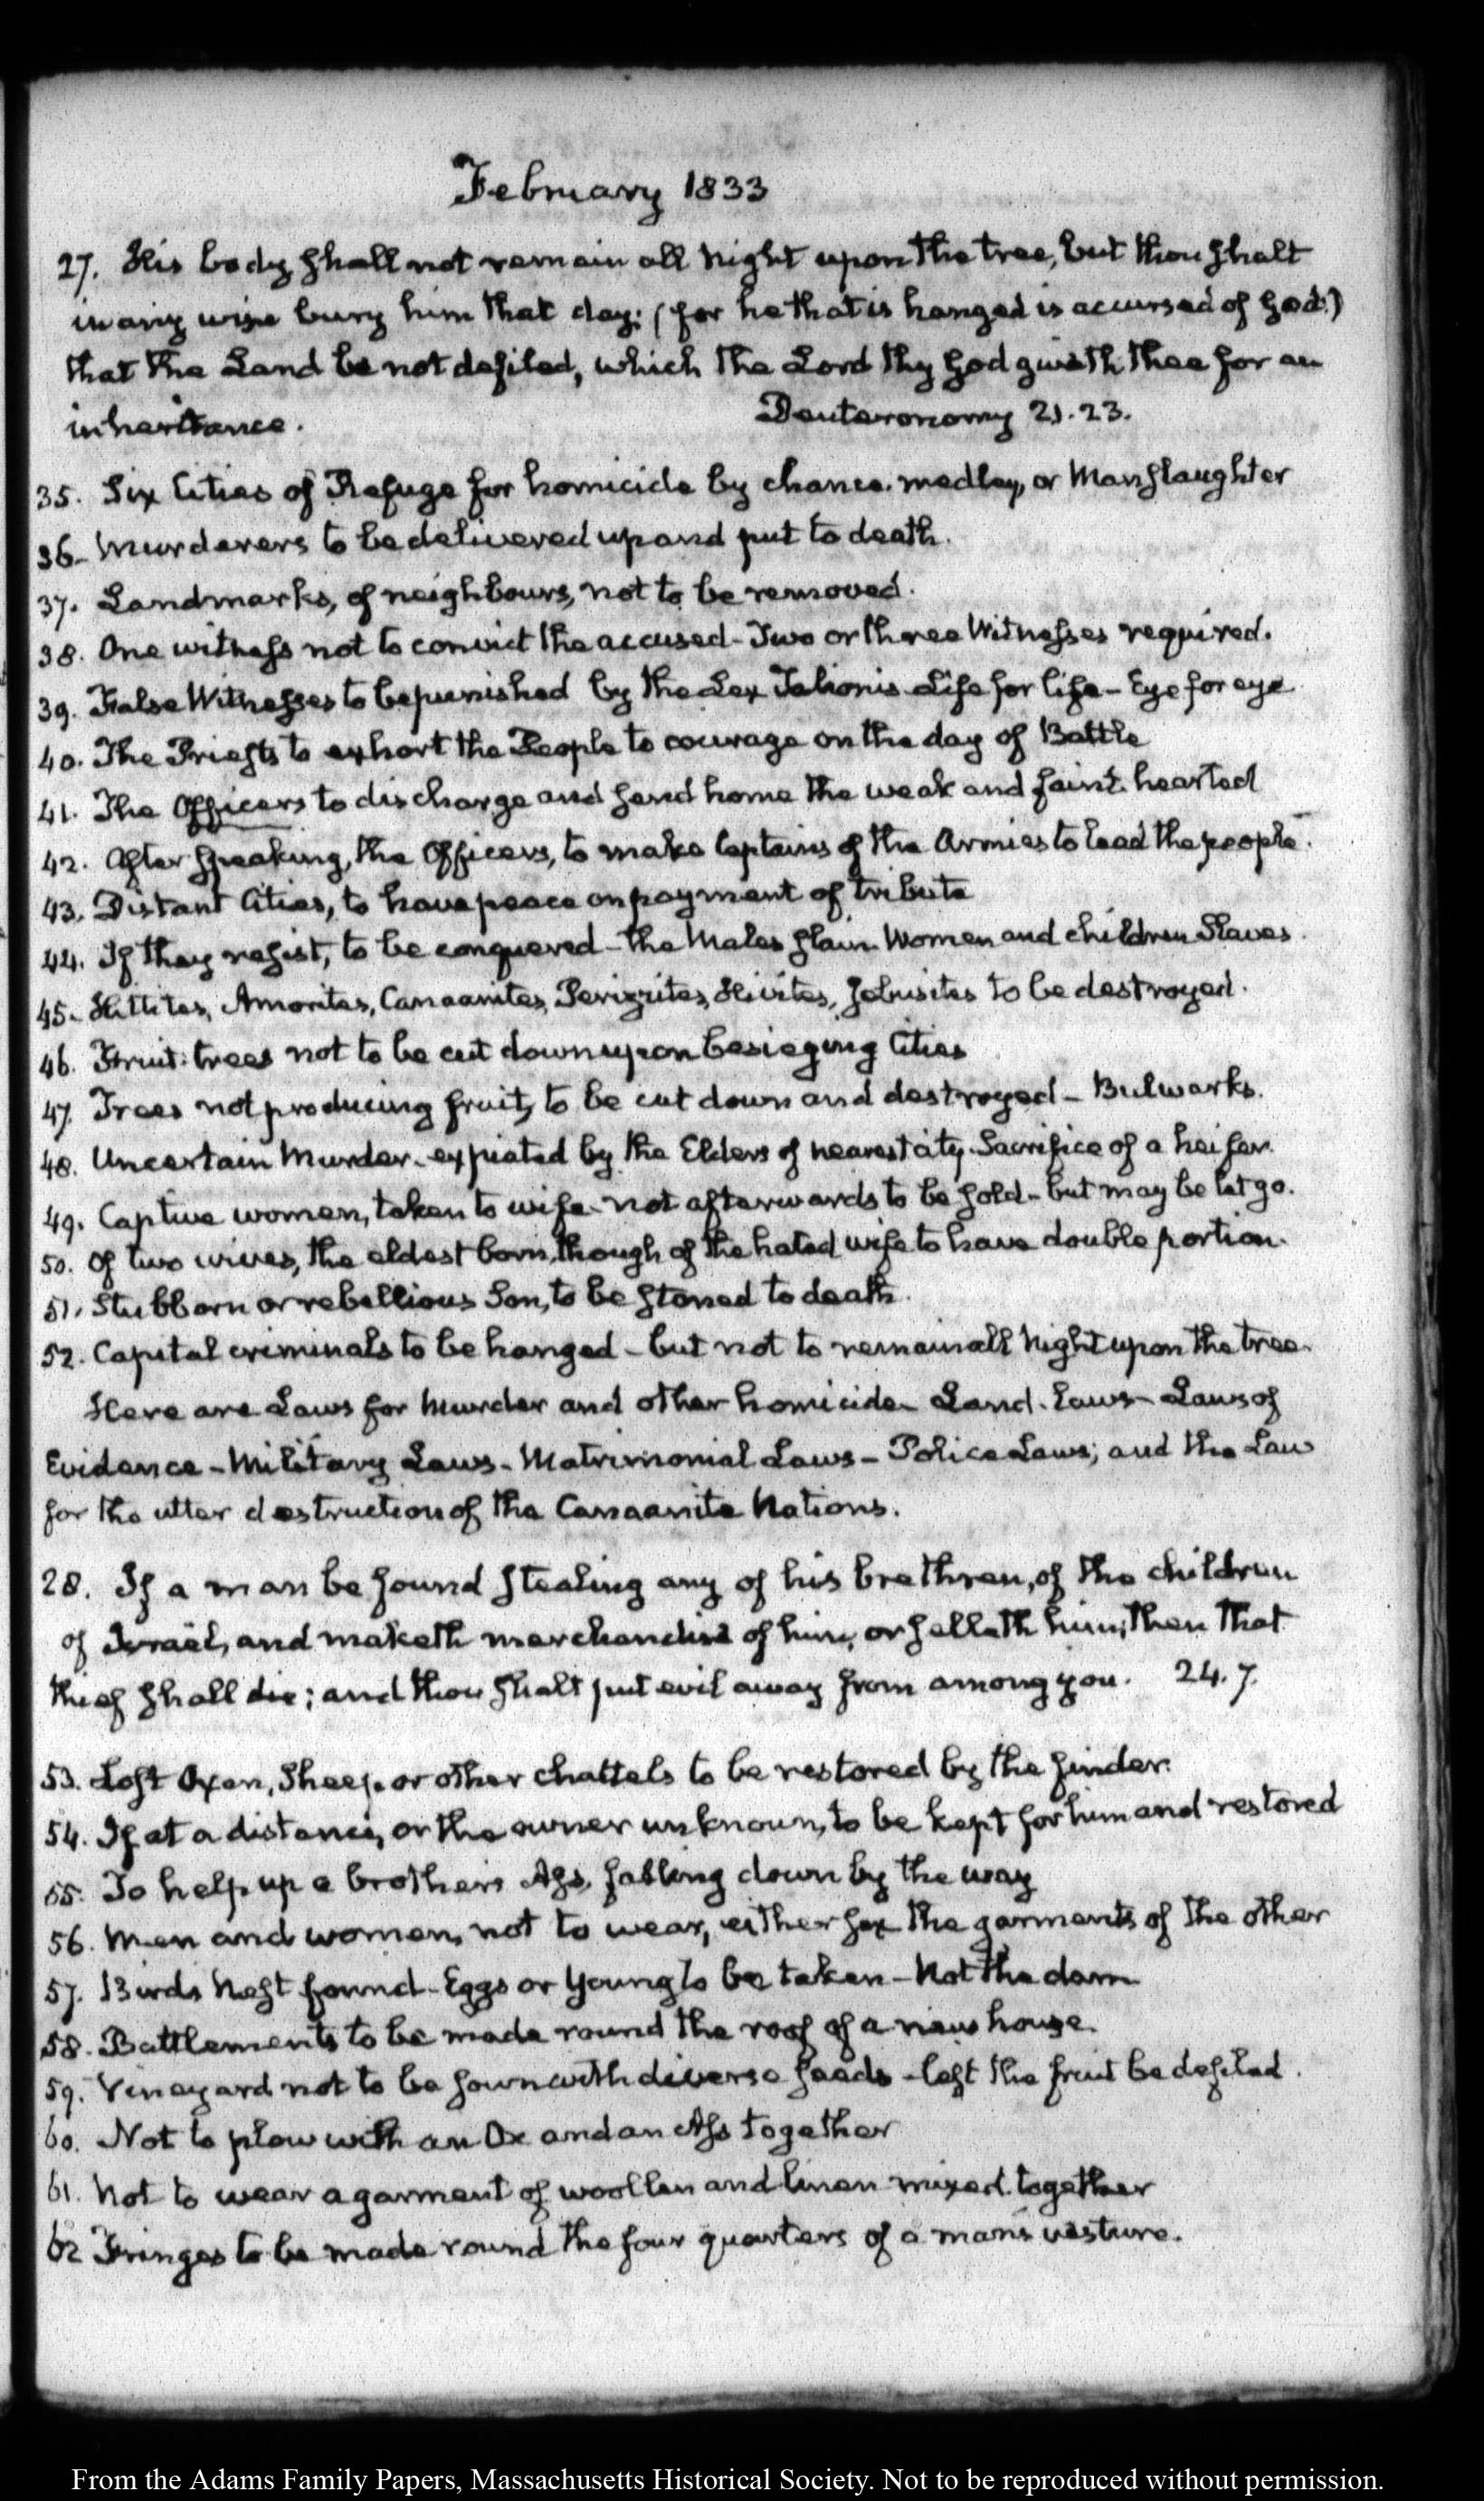 February 1833
27. His body shall not remain all night upon the tree, but thou shalt
in any wise bury him that day: (for he that is hanged is accursed of God:)
that the Land be not defiled, which the Lord thy God giveth thee for an
inheritance. Deuteronomy 21. 23.
35. Six Cities of Refuge for homicide by chance-medley, or Manslaughter
36- Murderers to be delivered up and put to death.
37. Landmarks, of neighbours, not to be removed.
38. One witness not to convict the accused - Two or three Witnesses required.
39. False Witnesses to be punished by the Lex Talionis Life for life - Eye for eye
40. The Priests to exhort the People to courage on the day of Battle
41. The Officers to discharge and send home the weak and faint-hearted
42. After speaking, the Officers, to make Captains of the Armies to lead the people.
43. Distant Cities, to have peace on payment of tribute
44. If they resist, to be conquered - the Males slain Women and children Slaves.
45- Hittites, Amorites, Canaanites, Perizzites, Hivites, Jebusites to be destroyed.
46. Fruit-trees not to be cut down upon besieging Cities
47. Trees not producing fruit, to be cut down and destroyed - Bulwarks.
48. Uncertain Murder - expiated by the Elders of nearest city. Sacrifice of a heifer.
49. Captive women, taken to wife - not afterwards to be sold - but may be let go.
50. Of two wives, the eldest born, though of the hated wife to have double portion.
51. Stubborn or rebellious Son, to be stoned to death.
52. Capital criminals to be hanged - but not to remain all night upon the tree.
Here are Laws for Murder and other homicide - Land-Laws - Laws of
Evidence - Military Laws - Matrimonial Laws - Police Laws; and the Law
for the utter destruction of the Canaanite Nations.
28. If a man be found stealing any of his brethren, of the children
of Israel, and maketh merchandise of him, or selleth him; then that
thief shall die; and thou shalt put evil away from among you. 24. 7.
53. Lost Oxen, Sheep, or other chattels to be restored by the finder.
54. If at a distance, or the owner unknown, to be kept for him and restored
55. To help up a brother's Ass, falling down by the way
56. Men and women, not to wear, either sex the garments of the other
57. Birds Nest found - Eggs or Young to be taken - Not the dam
58. Battlements to be made round the roof of a new house.
59. Vineyard not to be sown with diverse seeds - lest the fruit be defiled.
60. Not to plow with an Ox and an Ass together
61. Not to wear a garment of woollen and linen mixed together
62 Fringes to be made round the four quarters of a man's vesture.
From the Adams Family Papers, Massachusetts Historical Society. Not to be reproduced without permission.